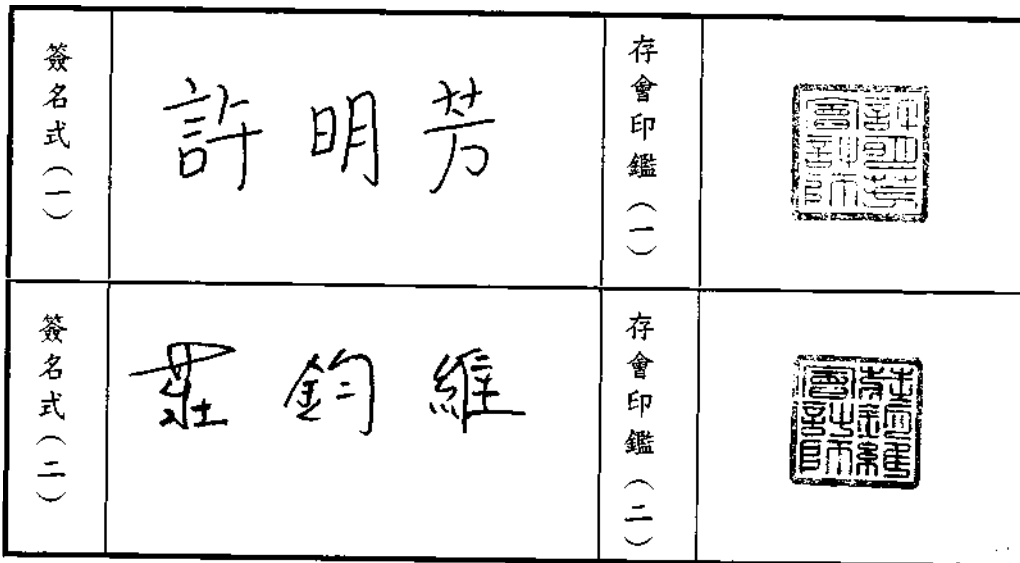 簽名式（一）
許明芳
存會印鑑（一）
許明芳會計師
簽名式（二）
莊鈞維
存會印鑑（二）
莊鈞維會計師